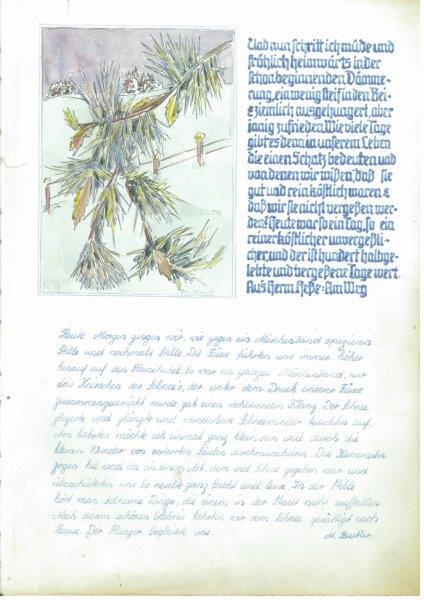 Und nun schritt ich müde und
fröhlich heimwärts in der
schon beginnenden Dämme-
rung, ein wenig steif in den Bei-
e ziemlich ausgehungert, aber
innig zufrieden. Wie viele Tage
gibt es denn in unserem Leben
die einen Schatz bedeuten und
von denen wir wißen, daß sie
gut und rein köstlich waren &
daß wir sie nicht vergeßen wer-
den! Heute war so ein Tag, so ein
reiner köstlicher unvergeßli-
cher, und der ist hundert halbge-
lebte und vergeßene Tage wert.
Aus Herm. Heße: Am Weg
Heute Morgen gingen wir, wie gegen ein Märchenland spazieren.
Stille und nochmals Stille. Die Füsse führten uns immer höher
hinauf auf den Es war ein ganzes Märchenland, nur
das Knirschen des Schnee's, der unter dem Druck unserer Füsse
zusammengedrückt wurde gab einen wohltuenden Klang. Der Schnee
glizerte und glänzte und wunderbare Schneewunder tauchten auf.
Am liebsten möchte ich einmal ganz klein sein und durch die
kleinen Wunder von erstarrten Säulen durchmarschieren. Die Kameraden
zogen hie und da an einem Ast, dem viel Schnee gegeben war und
überschütteten uns. Es rieselte ganz leicht und leise. In der Stille
hört man seltsame Dinge, die einem in der Stadt nicht auffallen.
Nach diesem schönen Erlebnis kehrten wir vom Schnee gesättigt nach
Hause. Der Hunger beglückte uns.